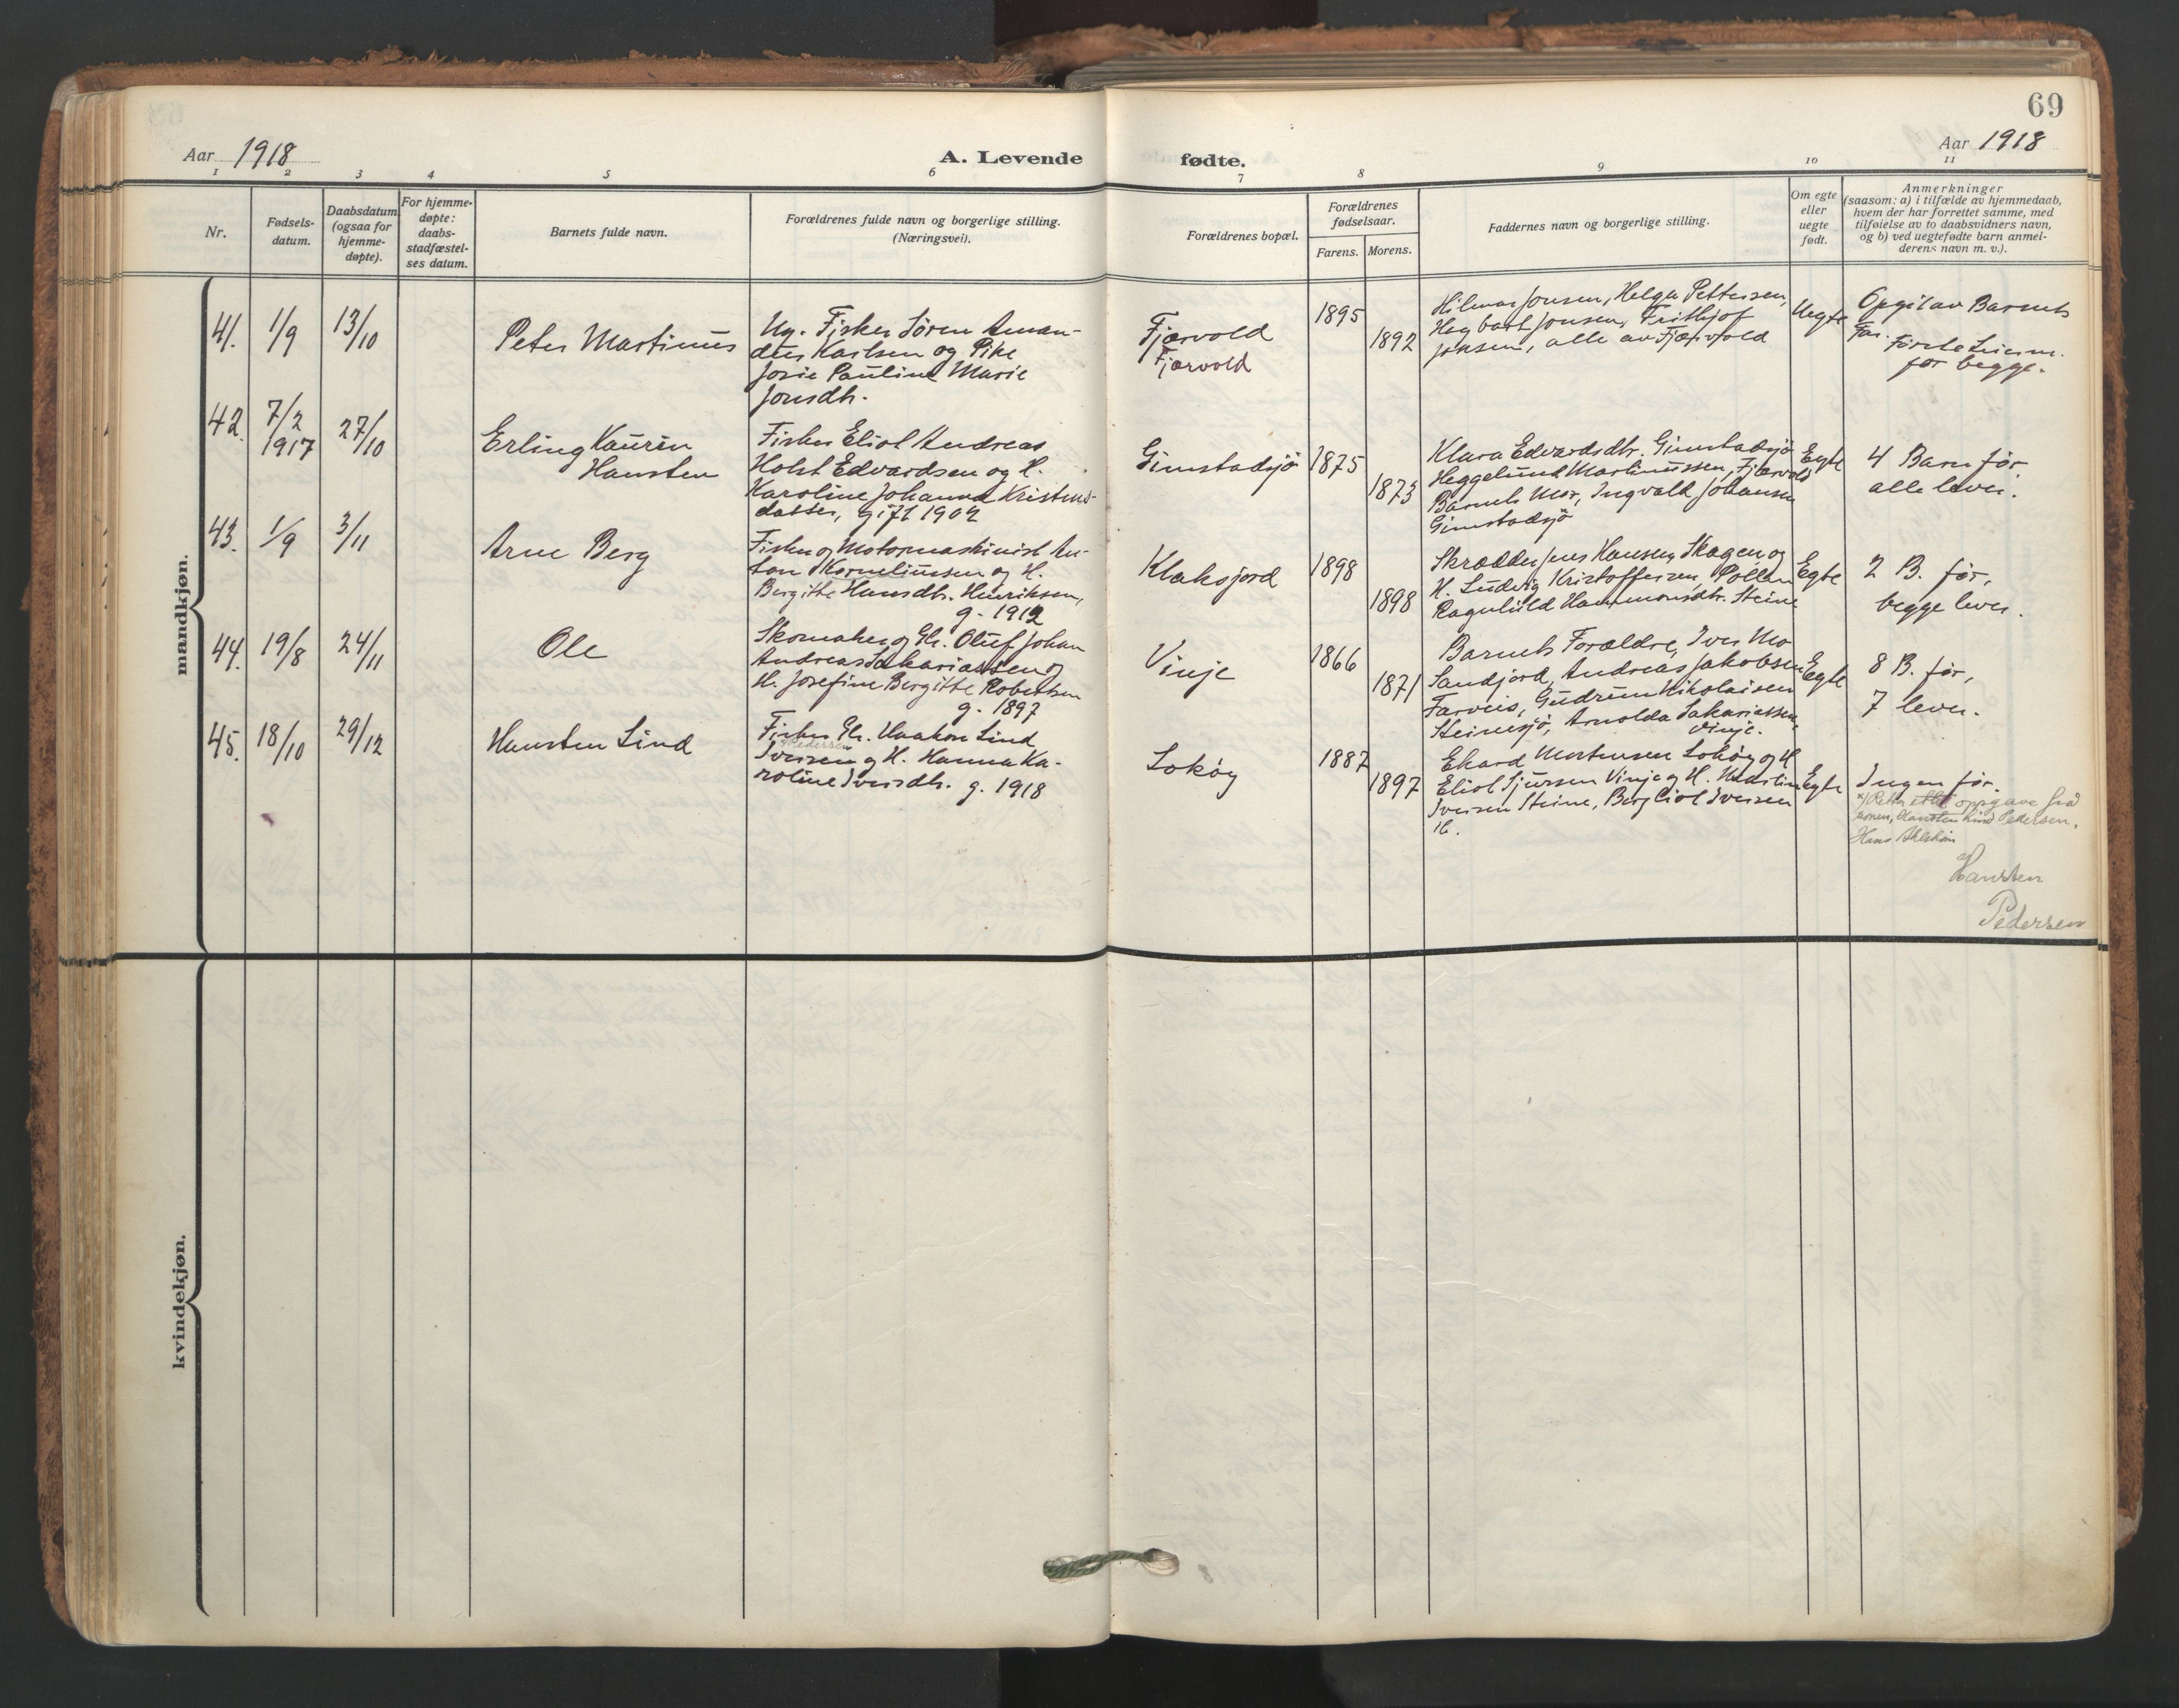 69
Aar 1918
A. Levende fødte.
Aar 1918
1 2 3 4 5 6 7 8 9 10 11
Nr.
Fødsels-
datum.
Daabsdatum
(ogsaa for
hjemme-
døpte).
For hjemme-
døpte:
daabs-
stadfæstel-
ses datum.
Barnets fulde navn.
Forældrenes fulde navn og borgerlige stilling.
(Næringsvei).
Forældrenes bopæl.
Forældrenes
fødselsaar.
Farens. Morens.
Faddernes navn og borgerlige stilling.
Om egte
eller
uegte
født.
Anmerkninger
(saasom: a) i tilfælde av hjemmedaab,
hvem der har forrettet samme, med
tilføielse av to daabsvidners navn,
og b) ved uegtefødte barn anmel-
derens navn m. v.).
mandkjøn.
41.
1/9
13/10
Peter Martinus
Ug. Fisker Søren Aman-
dus Karlsen og Pike
Josie Pauline Marie
Jonsdtr.
Fjærvold
Fjærvold
1895
1892
Hilmar Jonsen, Helga Pettersen,
Hegbart Jonsen, Frithjof
Jonsen, alle av Fjærvold
Uegte
Opgit av Barnets
Far.
Første Leierm.
for begge.
42.
7/2
1917
27/10
Erling Kaurin
Hansten
Fisker Eliot Andreas
Holst Edvardsen og H.
Karoline Johanna Kristens-
datter, gift 1902
Gimstadsjö
1875
1873
Klara Edvardsdtr. Gimstadsjö
Heggelund Martinussen, Fjærvold
Barnets Mor, Ingvald Johansen
Gimstadsjö
Egte
4 Barn før
alle lever.
43.
1/9
3/11
Arne Berg
Fisker og Motormaskinist An-
ton Korneliussen og H.
Bergitte Hansdtr. Henriksen,
g. 1912
Klaksjord
1898
1898
Skrædder Jens Hansen, Skagen og
H. Ludvig Kristoffersen, Pollen
Ragnhild Hammonsdtr. Steine
Egte
2 B. før,
begge lever.
44.
19/8
24/11
Ole
Skomaker og Gbr. Oluf Johan
Andreas Sakariassen og
H. Josefine Bergitte Robertsen
g. 1897
Vinje
1866
1871
Barnets Forældre, Iver Mo
Sandjord, Andreas Jakobsen
Farveis, Gudrun Nikolaisen
Steinesjö, Arnolda Sakariassen,
Vinje.
Egte
8 B. før,
7 lever.
45.
18/10
29/12
Hansten Lind
Fisker Gbr. Haakon Lind
Pedersen
Iversen og H. Hanna Ka-
roline Iversdtr. g. 1918
Sokög
1887
1897
Ekard Mortensen Sokög og H
Eliot Sjursen Vinje og H. Martin
Iversen Steine, Bergliot Iversen
H.
Egte
Ingen før.
x) Rettet etter oppgave fra
Hansten Lind Pedersen.
Hansten
Pedersen
kvindekjøn.